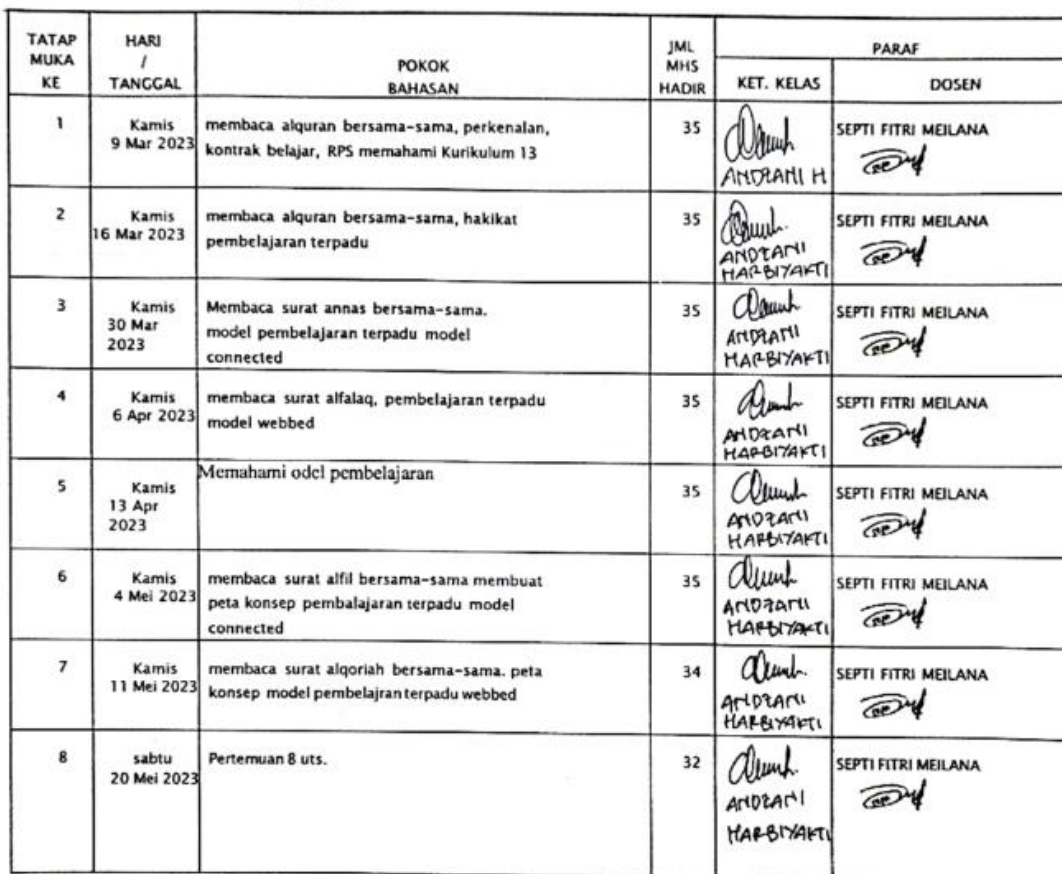 TATAP MUKA KE
HARI / TANGGAL
POKOK BAHASAN
JML MHS HADIR
PARAF
KET. KELAS
DOSEN
1
Kamis
9 Mar 2023
membaca alquran bersama-sama, perkenalan,
kontrak belajar, RPS memahami Kurikulum 13
35
ANDZANI H
SEPTI FITRI MEILANA
2
Kamis
16 Mar 2023
membaca alquran bersama-sama, hakikat
pembelajaran terpadu
35
ANDZANI
HARBIYAKTI
SEPTI FITRI MEILANA
3
Kamis
30 Mar
2023
Membaca surat annas bersama-sama.
model pembelajaran terpadu model
connected
35
ANDZANI
HARBIYAKTI
SEPTI FITRI MEILANA
4
Kamis
6 Apr 2023
membaca surat alfalaq, pembelajaran terpadu
model webbed
35
ANDZANI
HARBIYAKTI
SEPTI FITRI MEILANA
5
Kamis
13 Apr
2023
Memahami odel pembelajaran
35
ANDZANI
HARBIYAKTI
SEPTI FITRI MEILANA
6
Kamis
4 Mei 2023
membaca surat alfil bersama-sama membuat
peta konsep pembalajaran terpadu model
connected
35
ANDZANI
HARBIYAKTI
SEPTI FITRI MEILANA
7
Kamis
11 Mei 2023
membaca surat alqoriah bersama-sama. peta
konsep model pembelajran terpadu webbed
34
ANDZANI
HARBIYAKTI
SEPTI FITRI MEILANA
8
sabtu
20 Mei 2023
Pertemuan 8 uts.
32
ANDZANI
HARBIYAKTI
SEPTI FITRI MEILANA